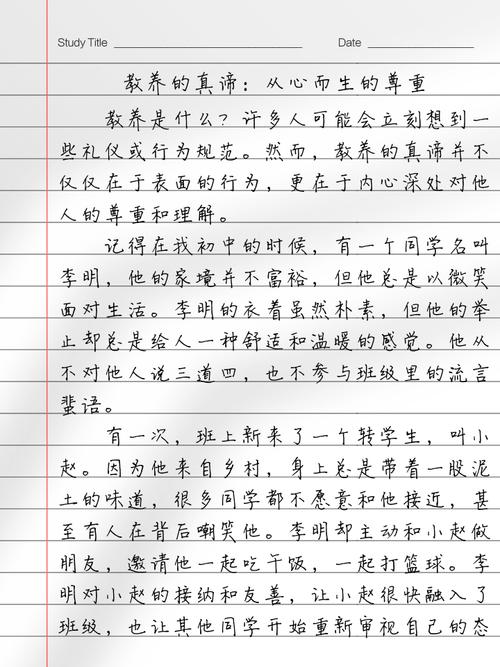 Study Title
Date
教养的真谛：从心而生的尊重
教养是什么？许多人可能会立刻想到一
些礼仪或行为规范。然而，教养的真谛并不
仅仅在于表面的行为，更在于内心深处对他
人的尊重和理解。
记得在我初中的时候，有一个同学名叫
李明，他的家境并不富裕，但他总是以微笑
面对生活。李明的衣着虽然朴素，但他的举
止却总是给人一种舒适和温暖的感觉。他从
不对他人说三道四，也不参与班级里的流言
蜚语。
有一次，班上新来了一个转学生，叫小
赵。因为他来自乡村，身上总是带着一股泥
土的味道，很多同学都不愿意和他接近，甚
至有人在背后嘲笑他。李明却主动和小赵做
朋友，邀请他一起吃午饭，一起打篮球。李
明对小赵的接纳和友善，让小赵很快融入了
班级，也让其他同学开始重新审视自己的态